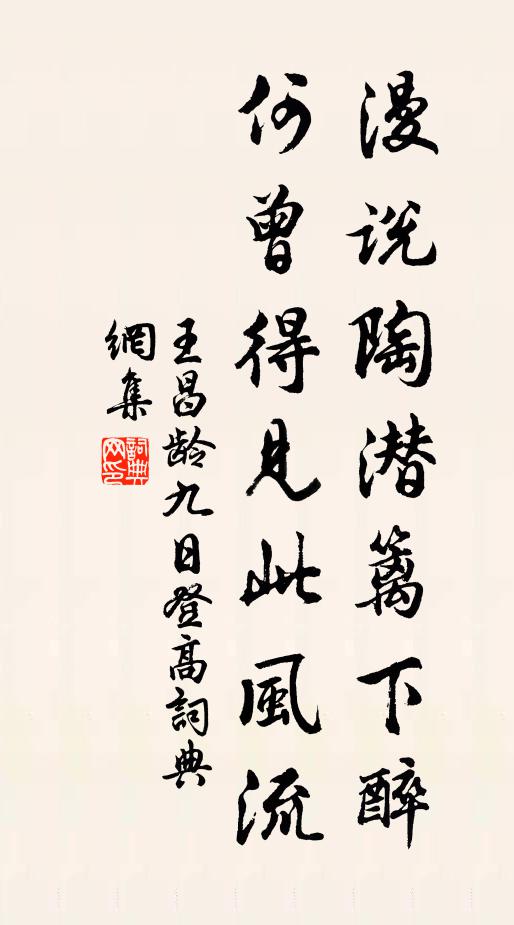 漫说陶潜篱下醉
何曾得见此風流
王昌龄九日登高詞典
網集
詞典網印